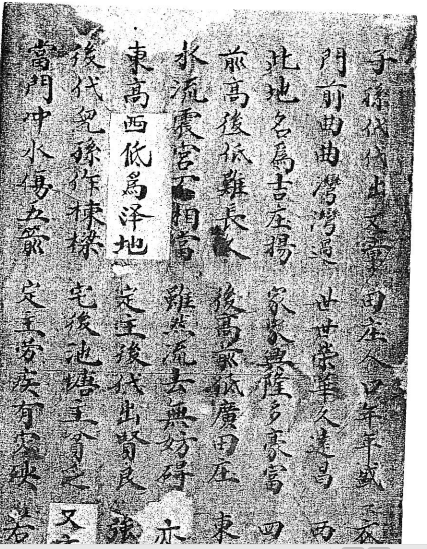 子孫代代出文章 田庄人口年年盛
門前曲曲灣灣過 世世榮華久遠昌
此地名爲吉庄揚 家家興隆多豪富 四
前高後低難長久 後高前低廣田庄 東
水流震宮不相當 雖然流去無妨碍 亦
東高西低爲泽地 定主後代出賢良 強
後代兒孫作棟樑 宅後池塘主 又
當門冲水傷五 定主劳疾有 若